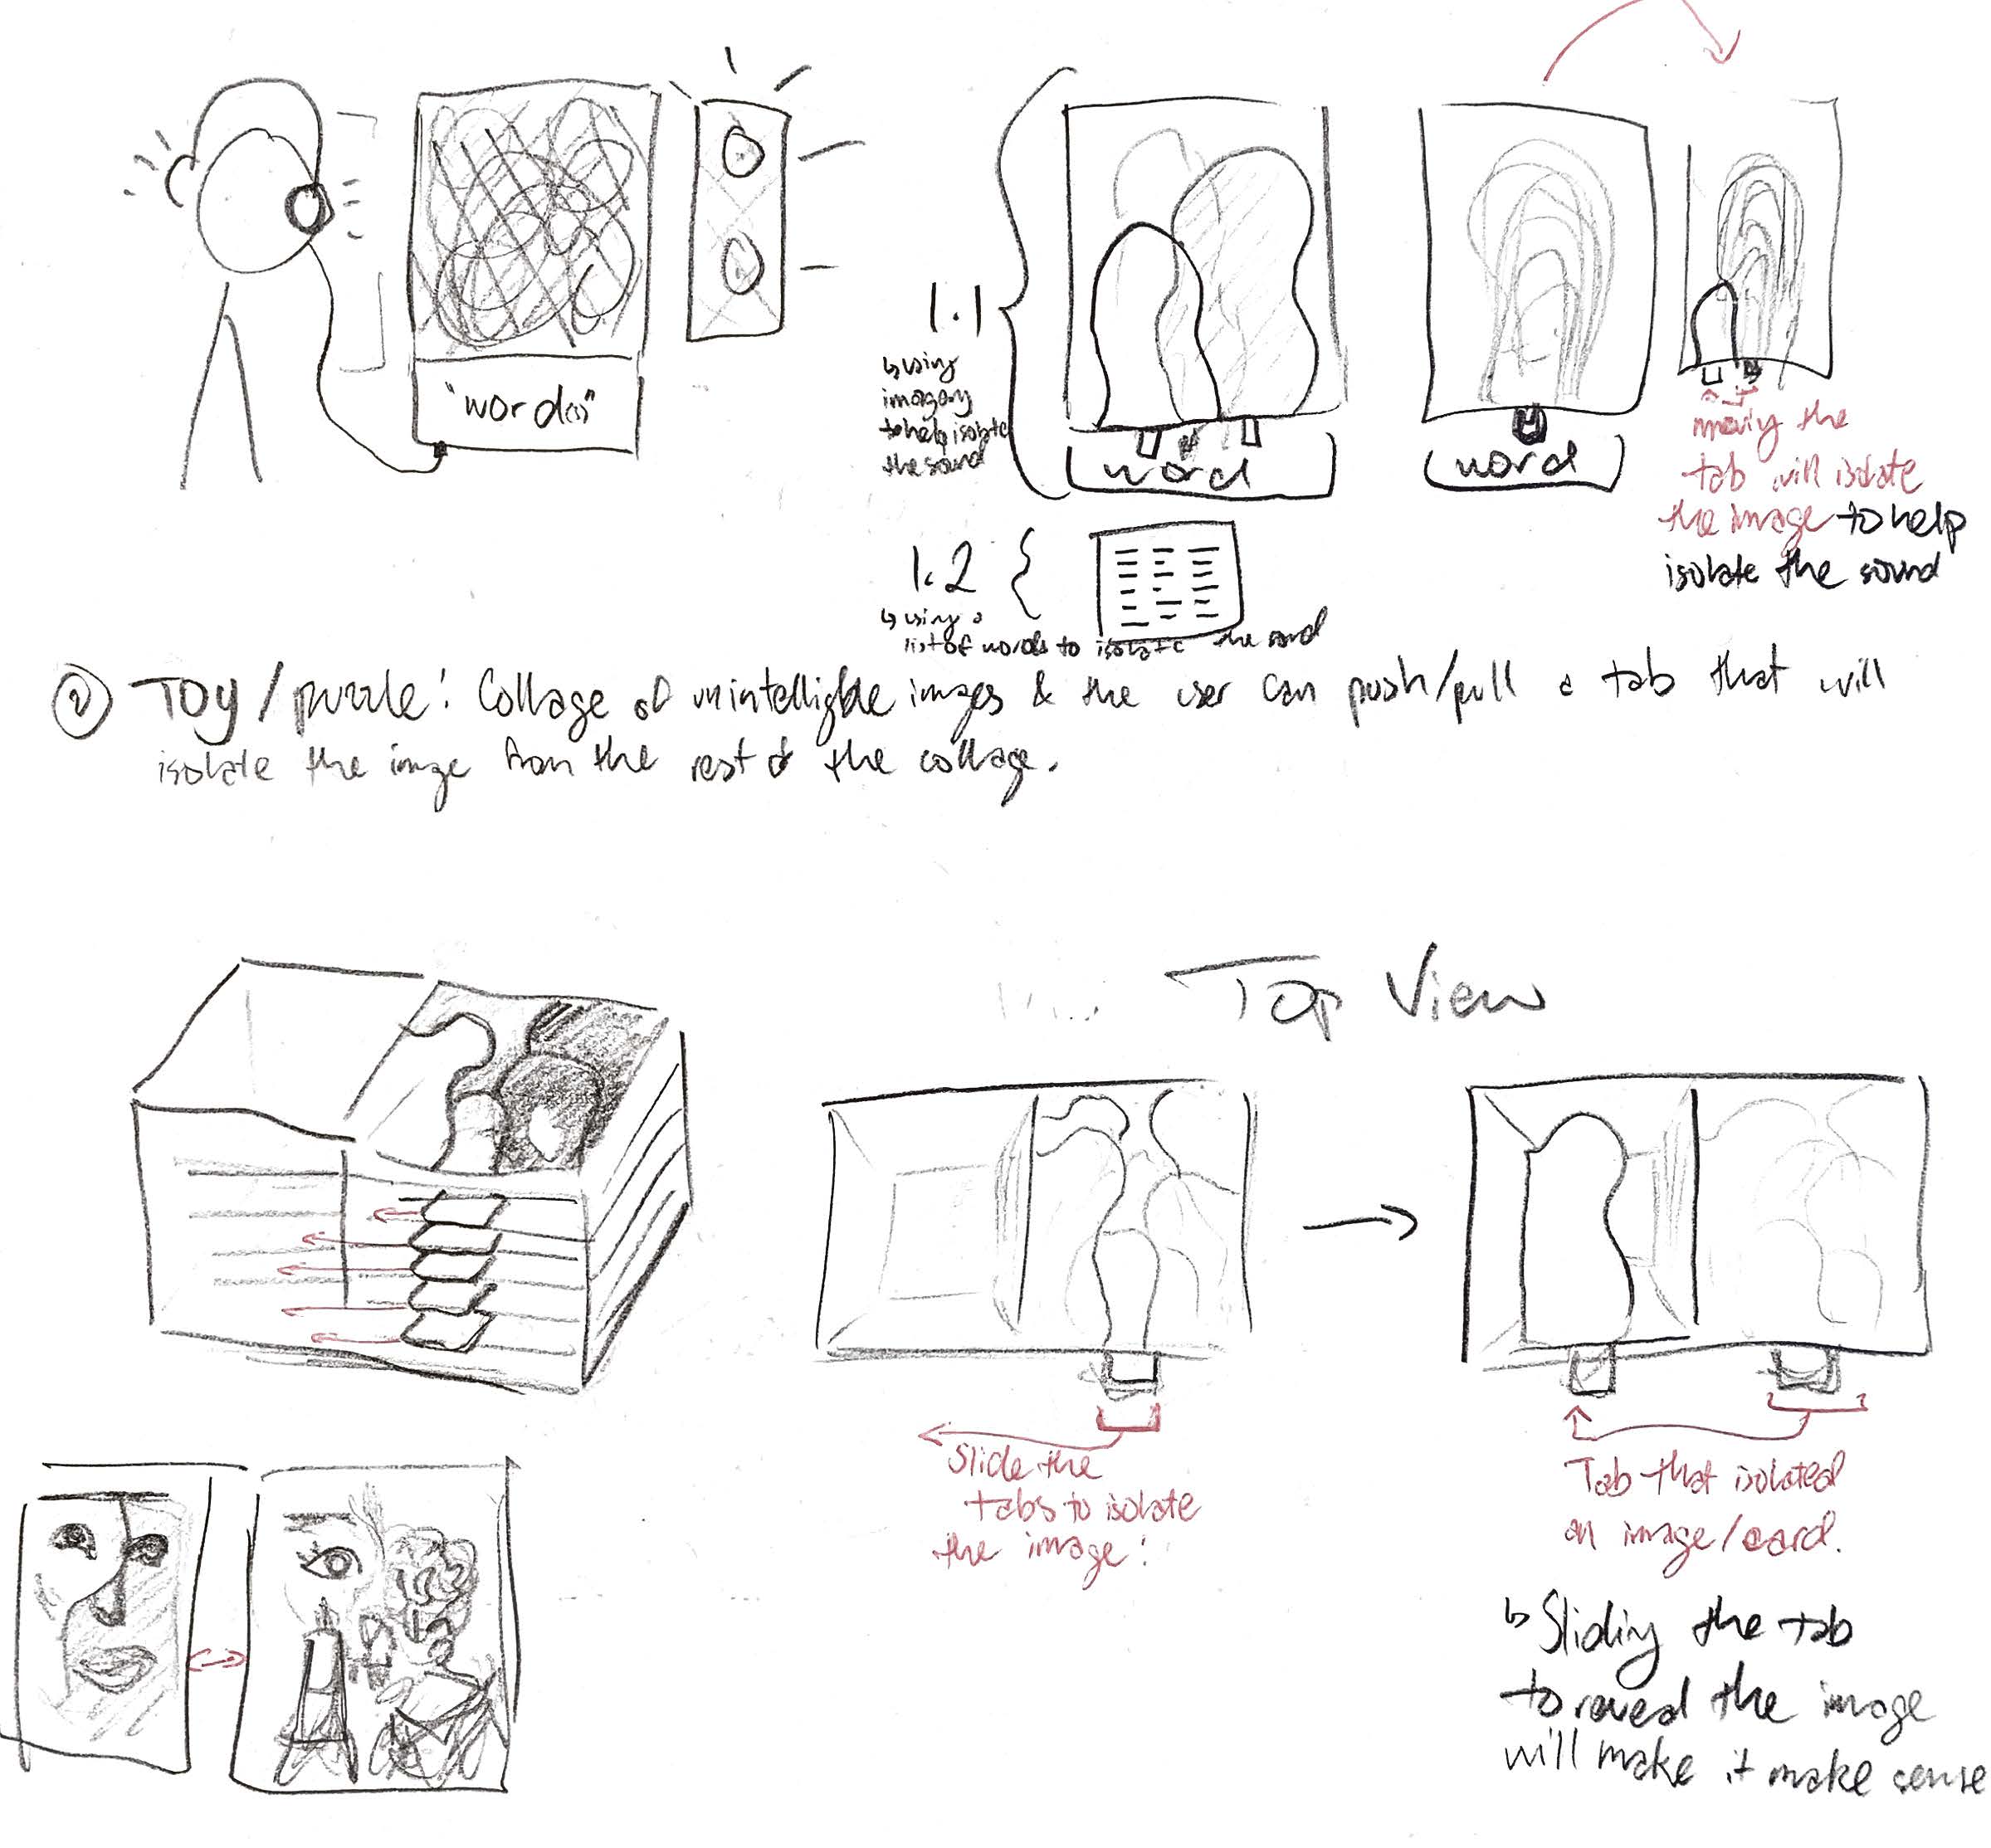 "word(s)"
1.1
↳ using
imagery
to help isolate
the sound
word
word
moving the
tab will isolate
the image to help
isolate the sound
1.2
↳ using a
list of words to isolate the sound
② Toy/puzzle: Collage of unintelligible images & the user can push/pull a tab that will
isolate the image from the rest of the collage.
Top View
Slide the
tabs to isolate
the image!
Tab that isolated
an image/card.
↳ Sliding the tab
to reveal the image
will make it make sense